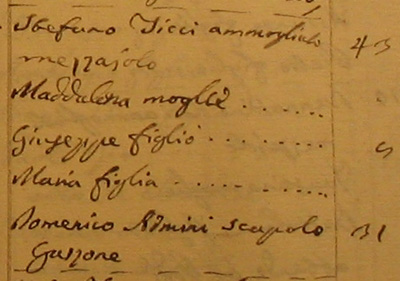 Stefano Ticci ammogliato 43
mezzajolo
Maddalena moglie . . . . . . .
Giuseppe figlio . . . . . . . . 5
Maria figlia . . . . . . . . . .
Domenico Admiri scapolo 31
Garzone